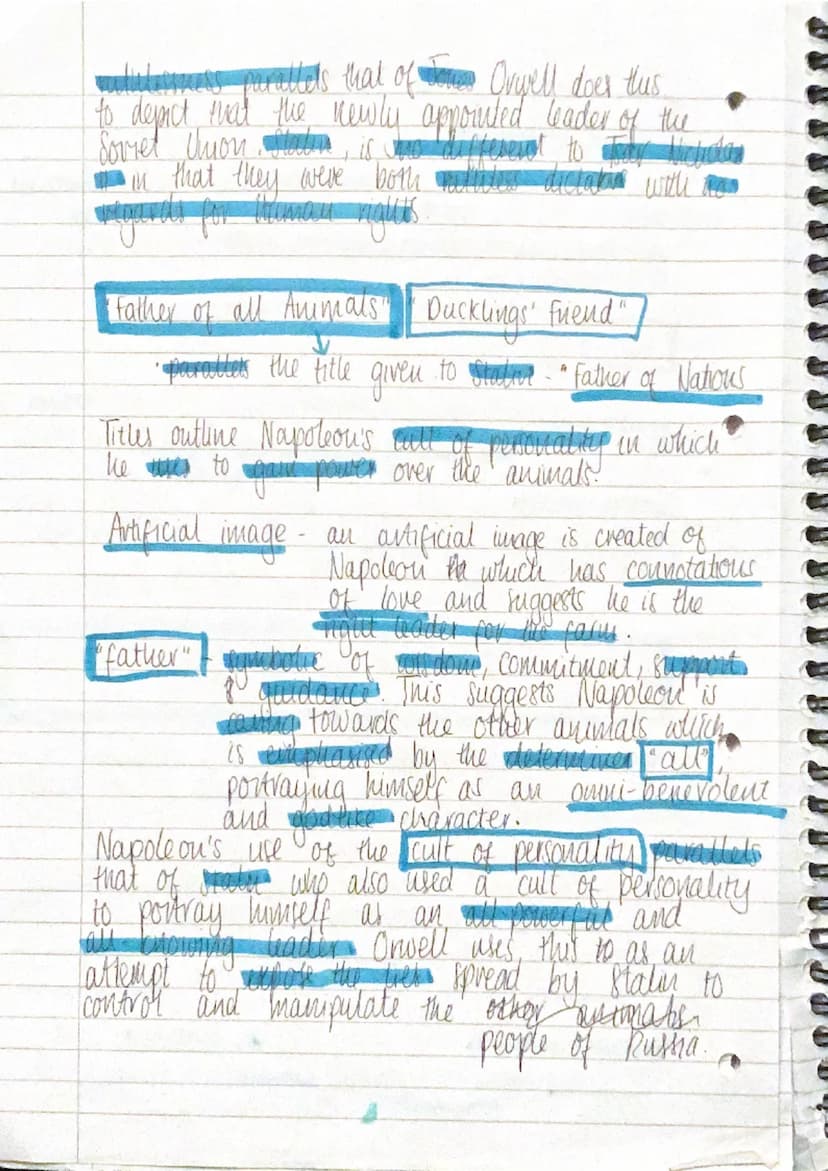 ruthlessness parallels that of Jones Orwell does this
to depict that the newly appointed leader of the
Soviet Union, Stalin, is no different to Tsar Nicholas
II in that they were both ruthless dictators with no
regards for human rights.
"Father of all Animals" "Ducklings' Friend"
· parallels the title given to Stalin - "Father of Nations
Titles outline Napoleon's cult of personality in which
he uses to gain power over the animals.
Artificial image - an artificial image is created of
Napoleon which has connotations
of love and suggests he is the
right leader for the farm.
"father" - symbolic of wisdom, commitment, support
& guidance. This suggests Napoleon is
caring towards the other animals which
is emphasised by the determiner "all",
portraying himself as an omni-benevolent
and godlike character.
Napoleon's use of the cult of personality parallels
that of Stalin who also used a cult of personality
to portray himself as an all-powerful and
all-knowing leader Orwell uses this to as an
attempt to expose the lies spread by Stalin to
control and manipulate the other animals
people of Russia.